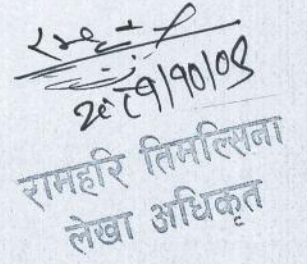 २०८१/१०/०९
रामहरि तिमल्सिना
लेखा अधिकृत